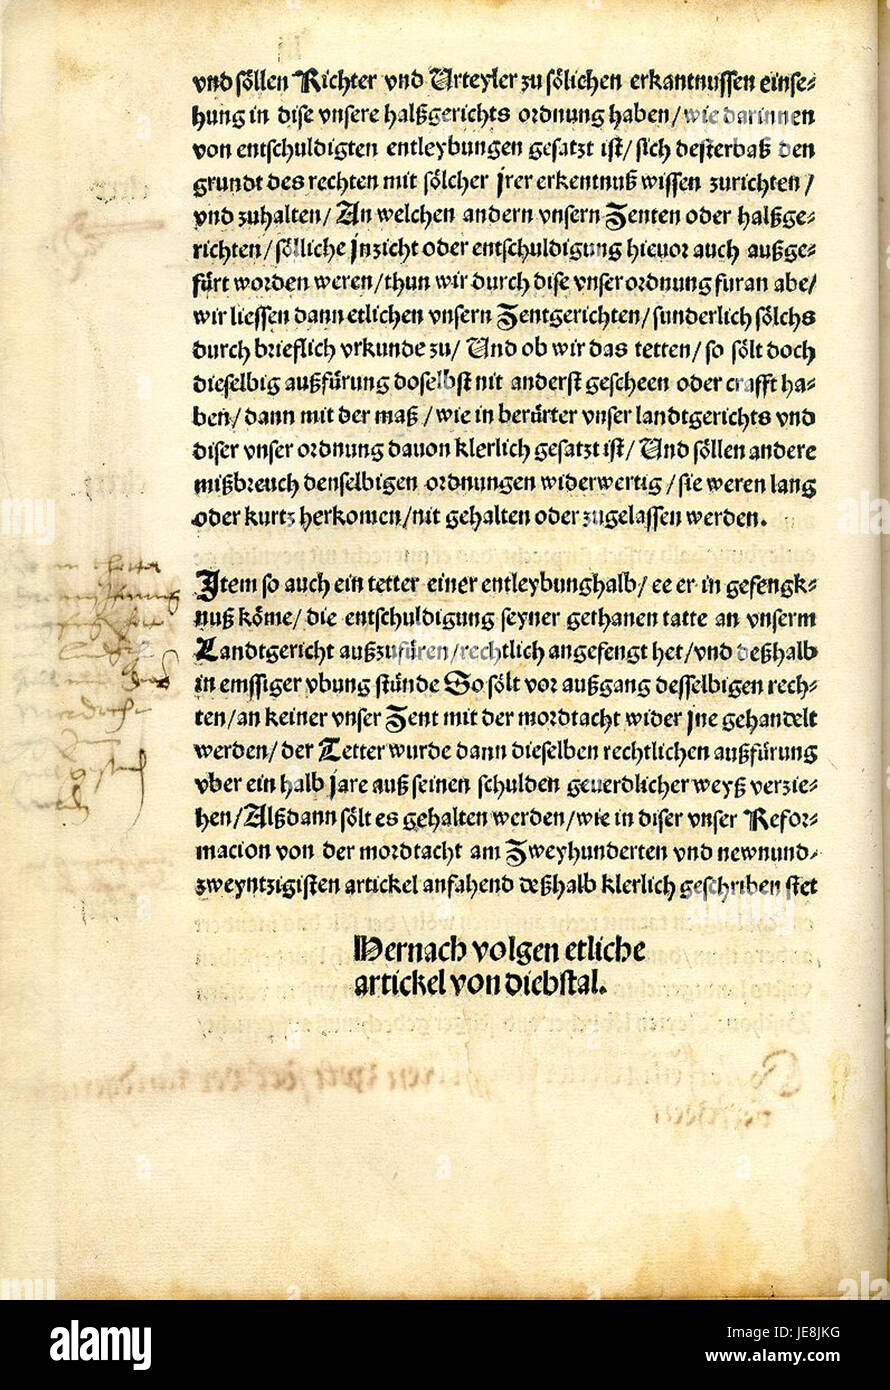 vnd söllen Richter vnd Vrteyler zu sölichen erkantnussen einse-
hung in dise vnsere halßgerichts ordnung haben/ wie darinnen
von entschuldigten entleybungen gesatzt ist/ sich desterbaß den
grundt des rechten mit sölcher jrer erkentnuß wissen zurichten/
vnd zuhalten/ An welchen andern vnsern Zenten oder halßge-
richten/ sölliche jnzicht oder entschuldigung hieuor auch außge-
fürt worden weren/ thun wir durch dise vnser ordnung furan abe/
wir liessen dann etlichen vnsern Zentgerichten/ sunderlich sölchs
durch brieflich vrkunde zu/ Vnd ob wir das tetten/ so sölt doch
dieselbig außfürung doselbst nit anderst gescheen oder crafft ha-
ben/ dann mit der maß/ wie in berürter vnser landtgerichts vnd
diser vnser ordnung dauon klerlich gesatzt ist/ Vnd söllen andere
mißbreuch denselbigen ordnungen widerwertig/ sie weren lang
oder kurtz herkomen/ nit gehalten oder zugelassen werden.
Item so auch ein tetter einer entleybunghalb/ ee er in gefengk-
nuß köme/ die entschuldigung seyner gethanen tatte an vnserm
Landtgericht außzufüren/ rechtlich angefengt het/ vnd deßhalb
in emssiger vbung stünde So sölt vor außgang desselbigen rech-
ten/ an keiner vnser Zent mit der mordtacht wider jne gehandelt
werden/ der Tetter wurde dann dieselben rechtlichen außfürung
vber ein halb jare auß seinen schulden geuerdlicher weyß verzie-
hen/ Alßdann sölt es gehalten werden/ wie in diser vnser Refor-
macion von der mordtacht am Zweyhunderten vnd newnund-
zweyntzigisten artickel anfahend deßhalb klerlich geschriben stet
Hernach volgen etliche
artickel von diebstal.
alamy
Image ID: JE8JKG
www.alamy.com